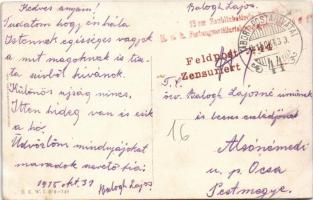 Kedves anyám!
Tudatom hogy én hála
Istennek egésséges vagyok
a mit magoknak is tisz
ta szivből kivánok.
Különös ujság nincs
Itten hideg van és esik
a hó.
Üdvözlöm mindnyájokat
maradok szerető fiai
1915 okt. 31 Balogh Lajos
Balogh Lajos.
15 cm
K. u. k. Festungsartillerie
TÁBORI POSTAHIVATAL
44
Feldpost 44
Zensuriert
T. c.
özv. Balogh Lajosné urnának
és becses családjának
Alsónémedi
u. p. Ocsa
Pestmegye.
16